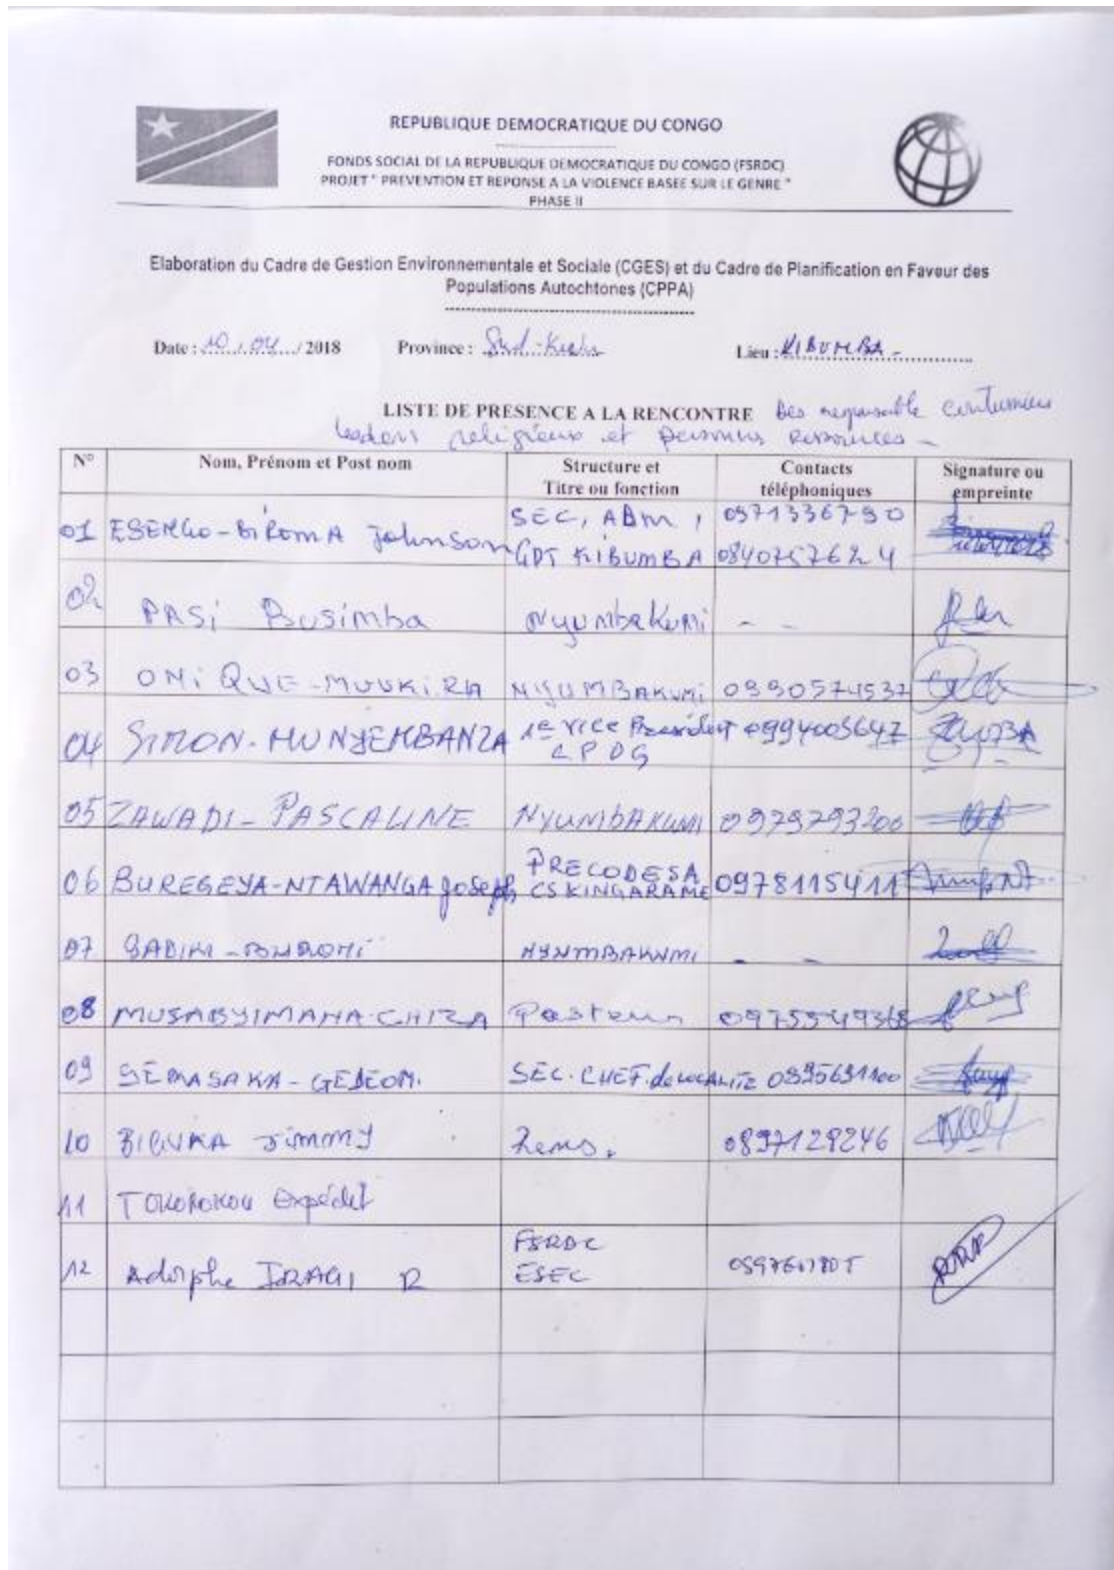 REPUBLIQUE DEMOCRATIQUE DU CONGO
FONDS SOCIAL DE LA REPUBLIQUE DEMOCRATIQUE DU CONGO (FSRDC)
PROJET " PREVENTION ET REPONSE A LA VIOLENCE BASEE SUR LE GENRE "
PHASE II
Elaboration du Cadre de Gestion Environnementale et Sociale (CGES) et du Cadre de Planification en Faveur des
Populations Autochtones (CPPA)
Date : 10 / 04 / 2018 Province : Sud-Kivu Lieu : KIBUMBA
LISTE DE PRESENCE A LA RENCONTRE Des responsable coutumiers
leaders religieux et personnes ressources
N° Nom, Prénom et Post nom Structure et Titre ou fonction Contacts téléphoniques Signature ou empreinte
01 BIROMA Johnson SEC, ADM, GPT KIBUMBA 0971336790 0840757624
02 PASI Busimba Nyumbakumi - -
03 ONIQUE-MUVKIRA NYUMBAKUMI 0990574537
04 SIMON-MUNYEMBANZA 1e Vice Président CPDG 0994005647
05 ZAWADI-PASCALINE NYUMBAKUMI 0979793200
06 BUREGEYA-NTAWANGA Joseph PRECODESA CS KINGARAME 0978115411
07 NYUMBAKUMI - -
08 MUSABYIMANA-CHIZA Pasteur 0975549368
09 SEMASAKA-GEDEON. SEC. CHEF de LOCALITE 0995691100
10 Jimmy 0897129246
11 Expédit
12 Adolphe IRAGI R FSRDC ESEC